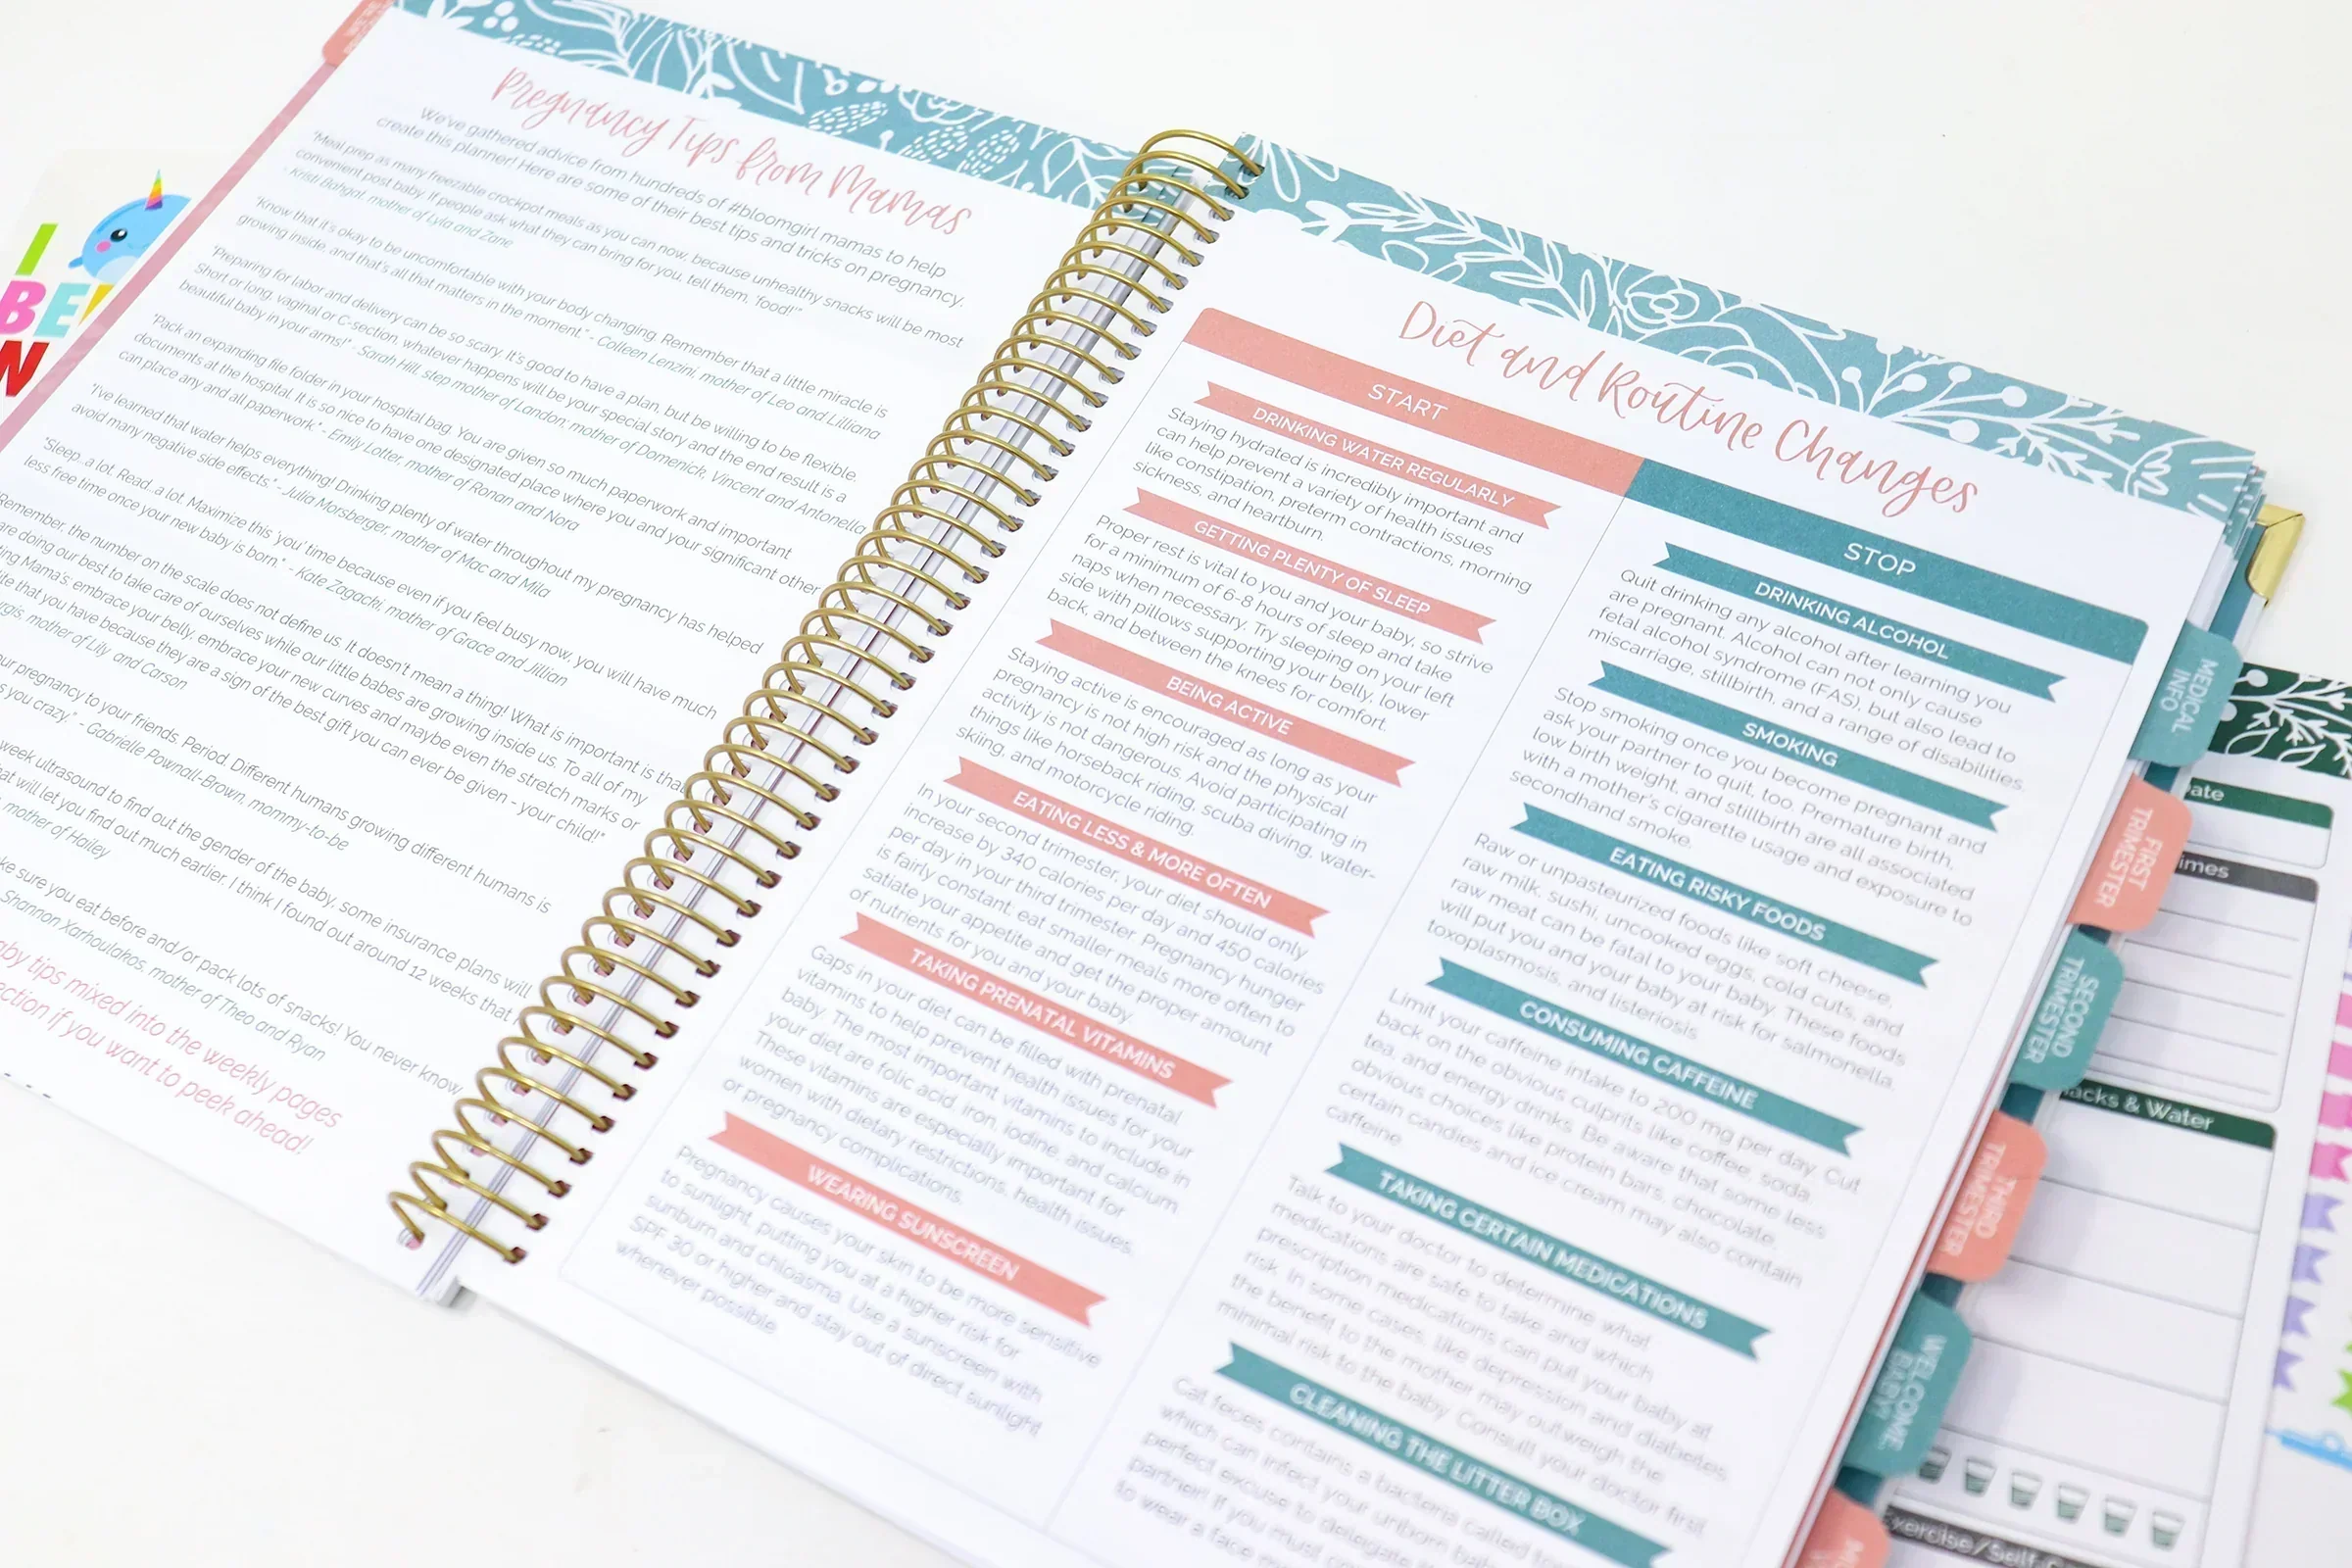 I
BE
N
Pregnancy Tips from Mamas
We've gathered advice from hundreds of #bloomgirl mamas to help
create this planner! Here are some of their best tips and tricks on pregnancy.
"Meal prep as many freezable crockpot meals as you can now, because unhealthy snacks will be most
convenient post baby. If people ask what they can bring for you, tell them, 'food!'"
- Kristi Bahgat, mother of Lyla and Zane
"Know that it's okay to be uncomfortable with your body changing. Remember that a little miracle is
growing inside, and that's all that matters in the moment." - Colleen Lenzini, mother of Leo and Lilliana
"Preparing for labor and delivery can be so scary. It's good to have a plan, but be willing to be flexible.
Short or long, vaginal or C-section, whatever happens will be your special story and the end result is a
beautiful baby in your arms!" - Sarah Hill, step mother of Landon; mother of Domenick, Vincent and Antonella
"Pack an expanding file folder in your hospital bag. You are given so much paperwork and important
documents at the hospital. It is so nice to have one designated place where you and your significant other
can place any and all paperwork" - Emily Lotter, mother of Ronan and Nora
"I've learned that water helps everything! Drinking plenty of water throughout my pregnancy has helped
avoid many negative side effects." - Julia Morsberger, mother of Mac and Mila
"Sleep...a lot. Read...a lot. Maximize this 'you' time because even if you feel busy now, you will have much
less free time once your new baby is born." - Kate Zagacki, mother of Grace and Jillian
Remember, the number on the scale does not define us. It doesn't mean a thing! What is important is that
are doing our best to take care of ourselves while our little babes are growing inside us. To all of my
Mama's: embrace your belly, embrace your new curves and maybe even the stretch marks or
that you have because they are a sign of the best gift you can ever be given - your child!"
mother of Lily and Carson
your pregnancy to your friends. Period. Different humans growing different humans is
you crazy." - Gabrielle Pownall-Brown, mommy-to-be
week ultrasound to find out the gender of the baby, some insurance plans will
that will let you find out much earlier. I think I found out around 12 weeks that
mother of Hailey
sure you eat before and/or pack lots of snacks! You never know
Shannon Xarhoulakos, mother of Theo and Ryan
tips mixed into the weekly pages
if you want to peek ahead!
Diet and Routine Changes
START
DRINKING WATER REGULARLY
Staying hydrated is incredibly important and
can help prevent a variety of health issues
like constipation, preterm contractions, morning
sickness, and heartburn.
GETTING PLENTY OF SLEEP
Proper rest is vital to you and your baby, so strive
for a minimum of 6-8 hours of sleep and take
naps when necessary. Try sleeping on your left
side with pillows supporting your belly, lower
back, and between the knees for comfort.
BEING ACTIVE
Staying active is encouraged as long as your
pregnancy is not high risk and the physical
activity is not dangerous. Avoid participating in
things like horseback riding, scuba diving, water-
skiing, and motorcycle riding.
EATING LESS & MORE OFTEN
In your second trimester, your diet should only
increase by 340 calories per day and 450 calories
per day in your third trimester. Pregnancy hunger
is fairly constant, eat smaller meals more often to
satiate your appetite and get the proper amount
of nutrients for you and your baby.
TAKING PRENATAL VITAMINS
Gaps in your diet can be filled with prenatal
vitamins to help prevent health issues for your
baby. The most important vitamins to include in
your diet are folic acid, iron, iodine, and calcium.
These vitamins are especially important for
women with dietary restrictions, health issues,
or pregnancy complications.
WEARING SUNSCREEN
Pregnancy causes your skin to be more sensitive
to sunlight, putting you at a higher risk for
sunburn and chloasma. Use a sunscreen with
SPF 30 or higher and stay out of direct sunlight
whenever possible.
STOP
DRINKING ALCOHOL
Quit drinking any alcohol after learning you
are pregnant. Alcohol can not only cause
fetal alcohol syndrome (FAS), but also lead to
miscarriage, stillbirth, and a range of disabilities.
SMOKING
Stop smoking once you become pregnant and
ask your partner to quit, too. Premature birth,
low birth weight, and stillbirth are all associated
with a mother's cigarette usage and exposure to
secondhand smoke.
EATING RISKY FOODS
Raw or unpasteurized foods like soft cheese,
raw milk, sushi, uncooked eggs, cold cuts, and
raw meat can be fatal to your baby. These foods
will put you and your baby at risk for salmonella,
toxoplasmosis, and listeriosis.
CONSUMING CAFFEINE
Limit your caffeine intake to 200 mg per day. Cut
back on the obvious culprits like coffee, soda,
tea, and energy drinks. Be aware that some less
obvious choices like protein bars, chocolate,
certain candies and ice cream may also contain
caffeine.
TAKING CERTAIN MEDICATIONS
Talk to your doctor to determine what
medications are safe to take and which
prescription medications can put your baby at
risk. In some cases, like depression and diabetes,
the benefit to the mother may outweigh the
minimal risk to the baby. Consult your doctor first.
CLEANING THE LITTER BOX
Cat feces contains a bacteria called
which can infect your unborn
perfect excuse to delegate
partner! If you must
to wear a face
MEDICAL
INFO
FIRST
TRIMESTER
SECOND
TRIMESTER
THIRD
TRIMESTER
WELCOME,
BABY!
Snacks & Water
Exercise/Self